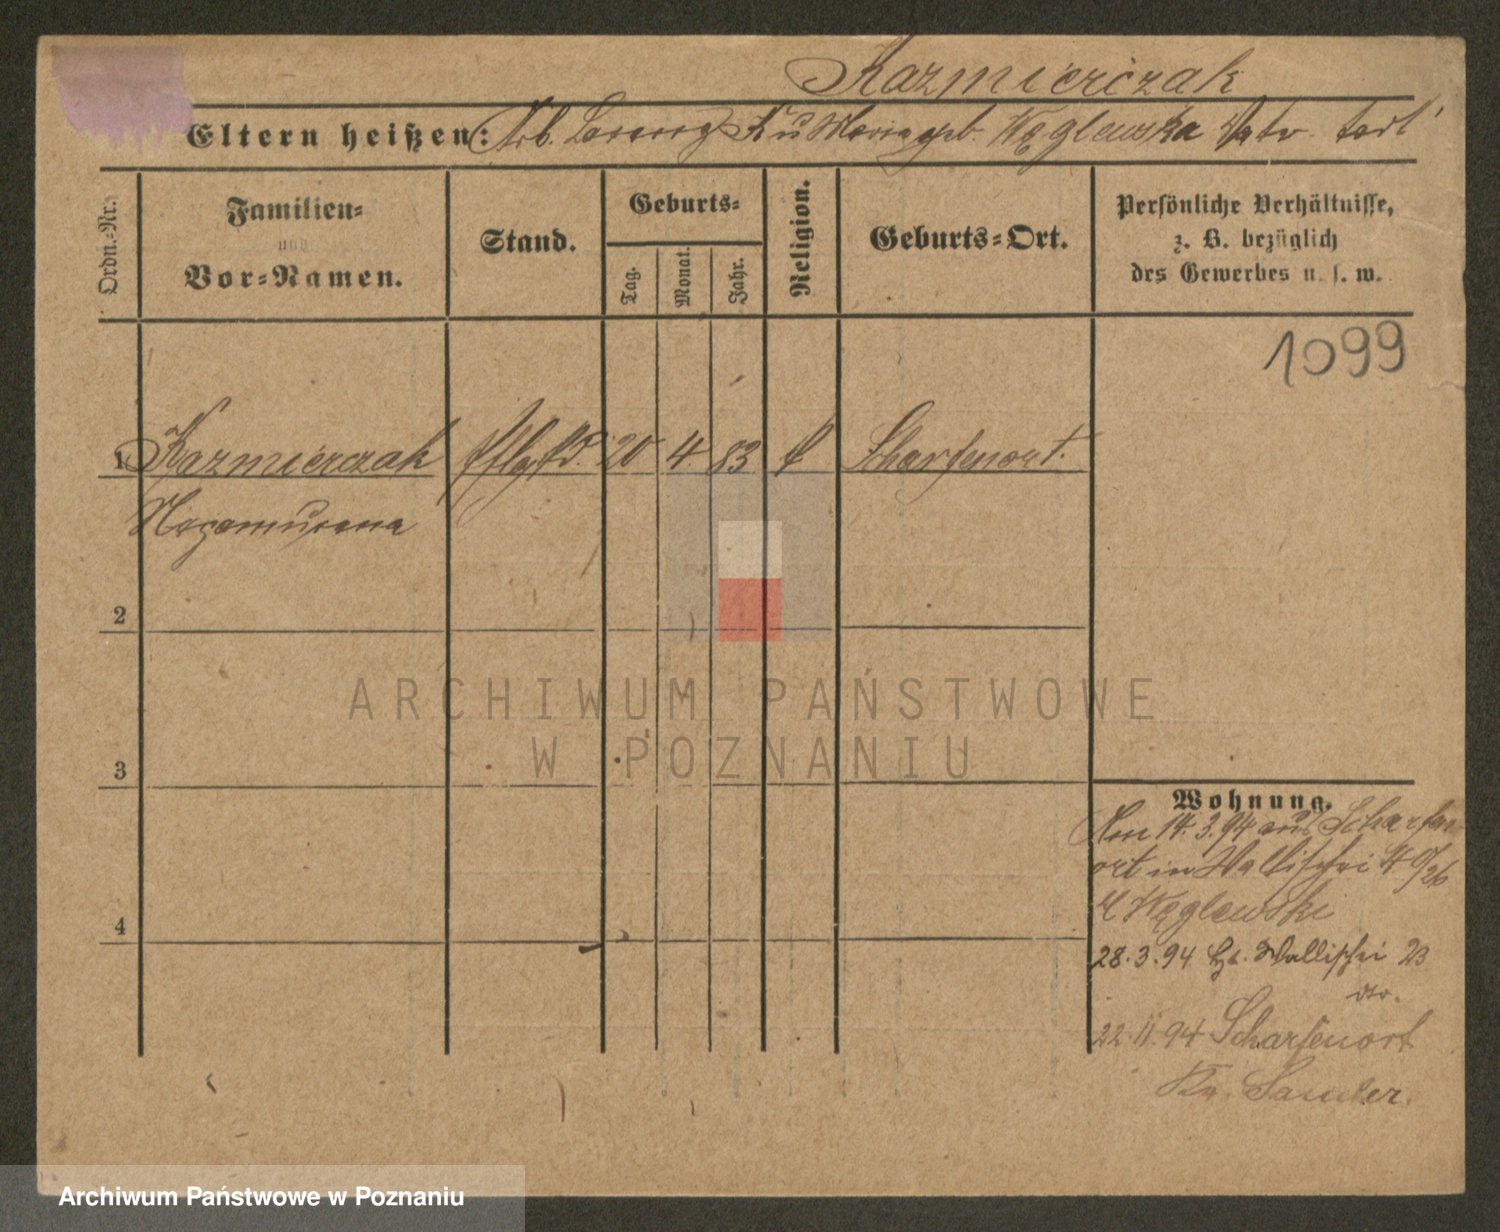 Kazmierczak
Eltern heißen: Arb. Lorenz K u Maria geb. Węglewska Vater todt
Ordn.-Nr.
Familien-
und
Vor-Namen.
Stand.
Geburts-
Tag.
Monat.
Jahr.
Religion.
Geburts-Ort.
Persönliche Verhältnisse,
z. B. bezüglich
des Gewerbes u. s. w.
1099
1 Kazmierczak Pflgkd. 20 4. 83 k Scharfenort.
Nepomucena
2
3
4
ARCHIWUM PAŃSTWOWE
W POZNANIU
Wohnung.
14. 3. 94 aus Scharfen
ort in Wallischei
Węglewski
28.3.94 Wallischei 23
dto.
22 11 94 Scharfenort
Kr. Samter.
Archiwum Państwowe w Poznaniu